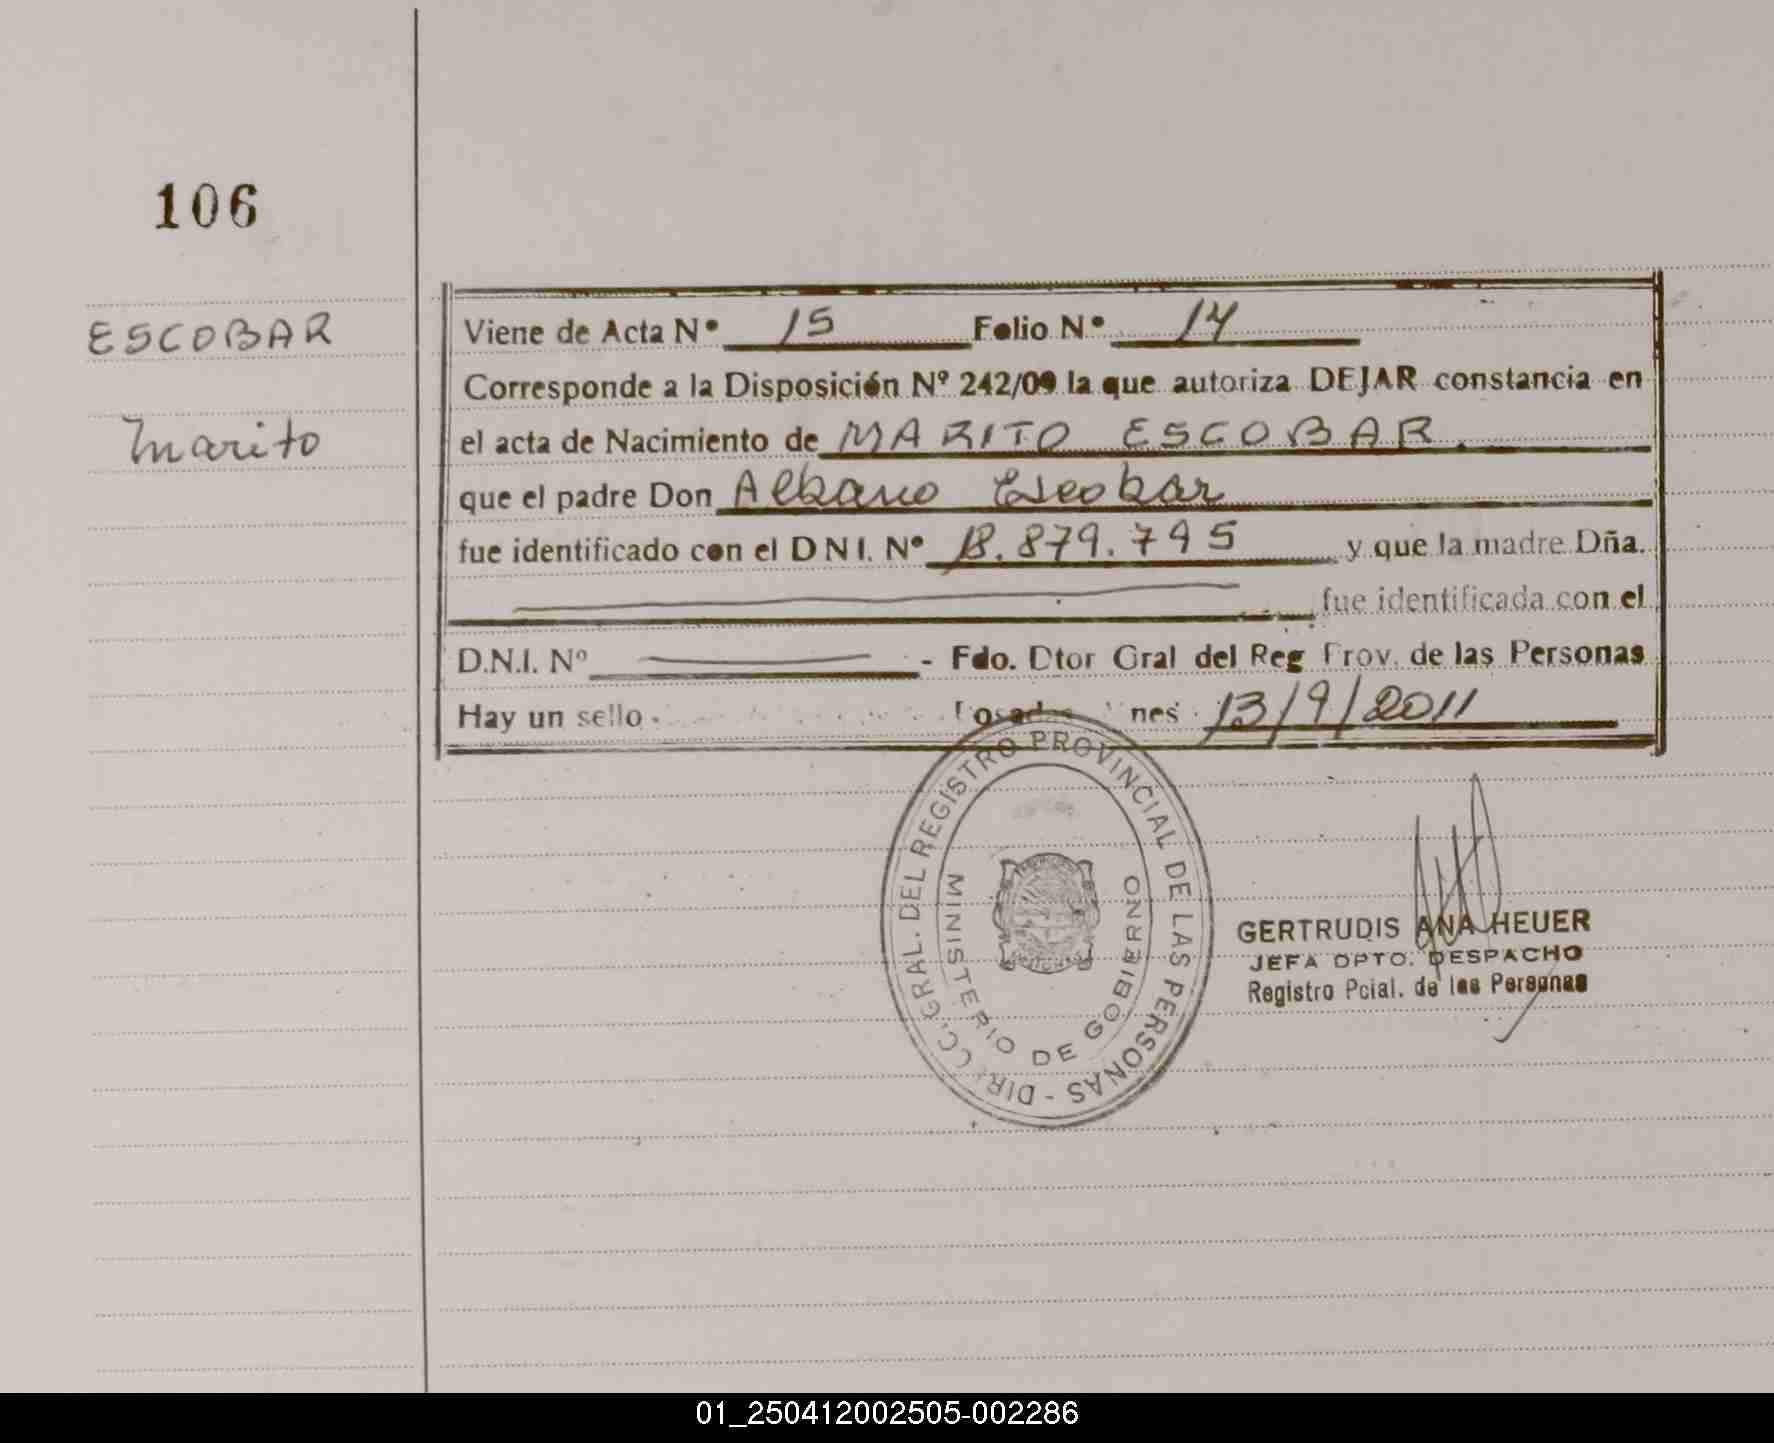 106
ESCOBAR
Marito
Viene de Acta Nº 15 Folio Nº 14
Corresponde a la Disposición Nº 242/09 la que autoriza DEJAR constancia en
el acta de Nacimiento de MARITO ESCOBAR.
que el padre Don Albano Escobar
fue identificado con el D N I. Nº 18.879.795 y que la madre Dña.
fue identificada con el
D.N.I. Nº - Fdo. Dtor Gral del Reg Prov. de las Personas
Hay un sello. Posadas nes 13/9/2011
DIRECC. GRAL. DEL REGISTRO PROVINCIAL DE LAS PERSONAS -
MINISTERIO DE GOBIERNO
GERTRUDIS ANA HEUER
JEFA DPTO. DESPACHO
Registro Pcial. de las Personas
01_250412002505-002286